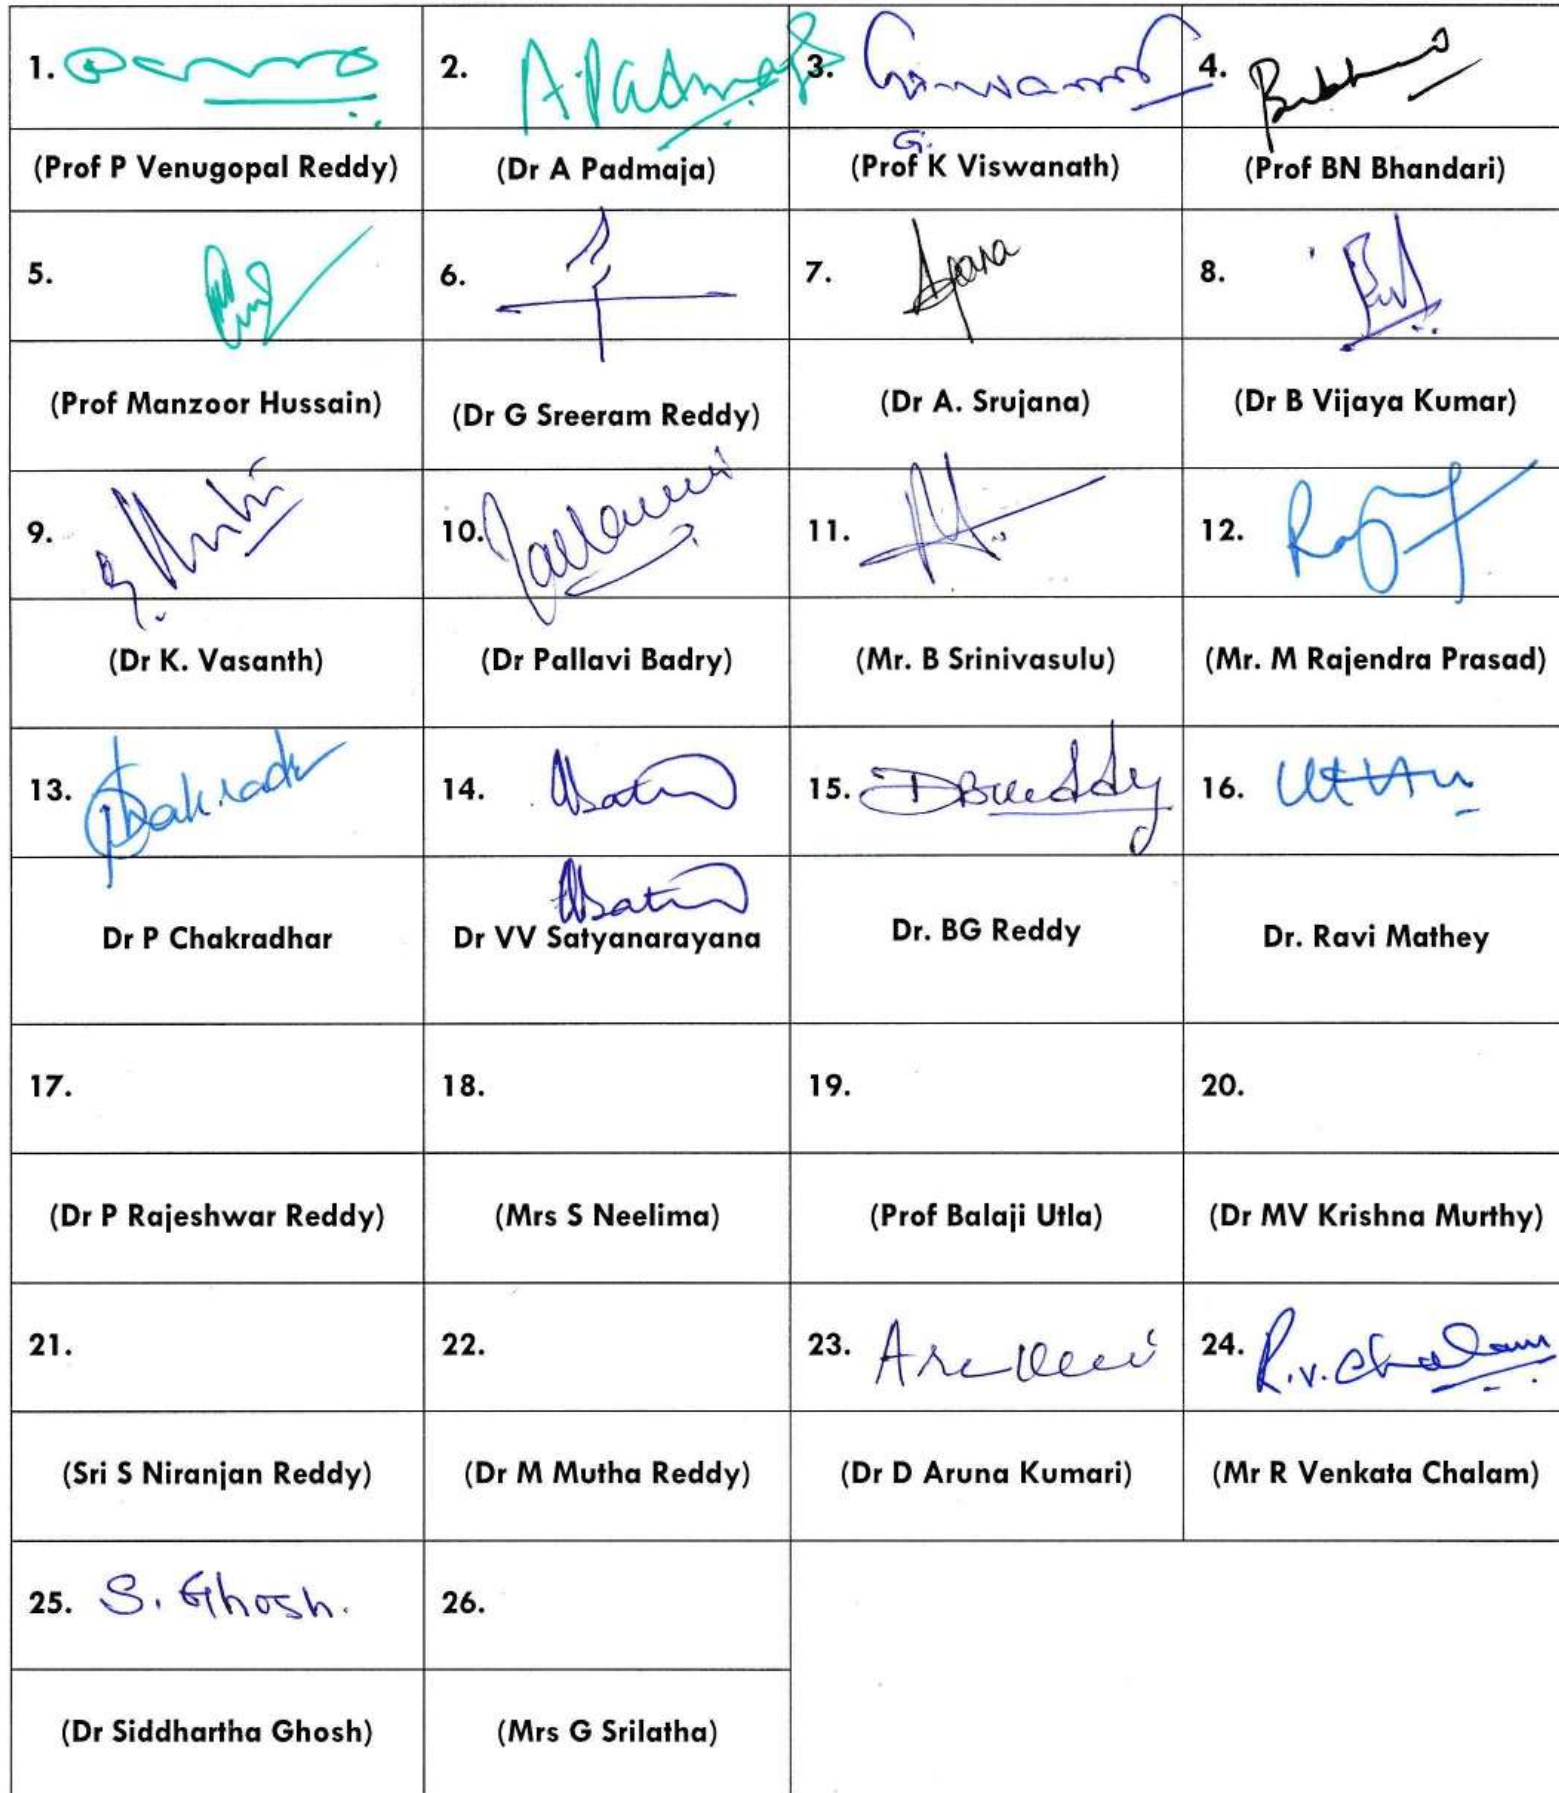 1. 2. A. Padmaja 3. 4.
(Prof P Venugopal Reddy) (Dr A Padmaja) G. (Prof K Viswanath) (Prof BN Bhandari)
5. 6. 7. 8.
(Prof Manzoor Hussain) (Dr G Sreeram Reddy) (Dr A. Srujana) (Dr B Vijaya Kumar)
9. 10. 11. 12.
(Dr K. Vasanth) (Dr Pallavi Badry) (Mr. B Srinivasulu) (Mr. M Rajendra Prasad)
13. 14. 15. 16.
Dr P Chakradhar Dr VV Satyanarayana Dr. BG Reddy Dr. Ravi Mathey
17. 18. 19. 20.
(Dr P Rajeshwar Reddy) (Mrs S Neelima) (Prof Balaji Utla) (Dr MV Krishna Murthy)
21. 22. 23. 24. R.v. Chalam
(Sri S Niranjan Reddy) (Dr M Mutha Reddy) (Dr D Aruna Kumari) (Mr R Venkata Chalam)
25. S. Ghosh. 26.
(Dr Siddhartha Ghosh) (Mrs G Srilatha)